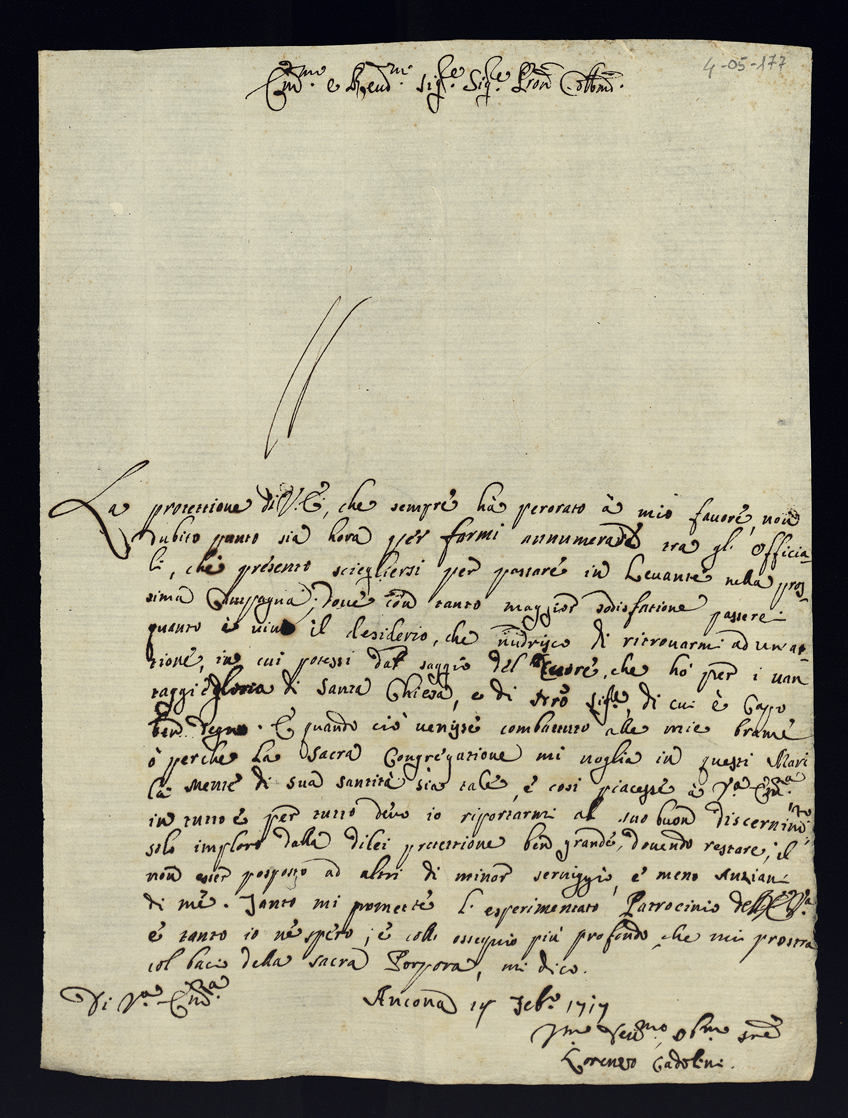 4-05-177
Em.mo e Rev.mo Sig.re Sig.re Pron Col.mo
La protettione di V. E., che sempre hà perorato à mio favore, non
dubito punto sia hora per farmi annumerare tra gl' Officia-
li, che presento sciegliersi per passare in Levante nella pros-
sima Campagna; dove con tanto maggior sodisfatione passerei
quanto è vivo il desiderio, che nudrisco di ritrovarmi ad un at-
tione, in cui potessi dar saggio del che hò per i van
taggi è gloria di Santa Chiesa, e di Sig.re, di cui è Capo
ben degno. E quando ciò venisse combattuto alle mie brame
ò perche la Sacra Congregatione mi voglia in questi Mari
la mente di sua Santità sia tale, e cosi piacesse à V.a Em.za
in tutto è per tutto devo io riportarmi al suo buon discernim.to
solo imploro dalla dilei protettione ben grande, dovendo restare, il
non esser posposto ad altri di minor serviggio, e meno Anziani
di me. Tanto mi promette l' esperimentato Patrocinio dell' E. V.a
e tanto io nè spero; è coll' ossequio più profondo che mi prostra
col bacio della Sacra Porpora, mi dico.
Di V.a Em.za Ancona 15 Feb.o 1717
V.mo Dev.mo Ob.mo Sre
Lorenzo Cadolini.